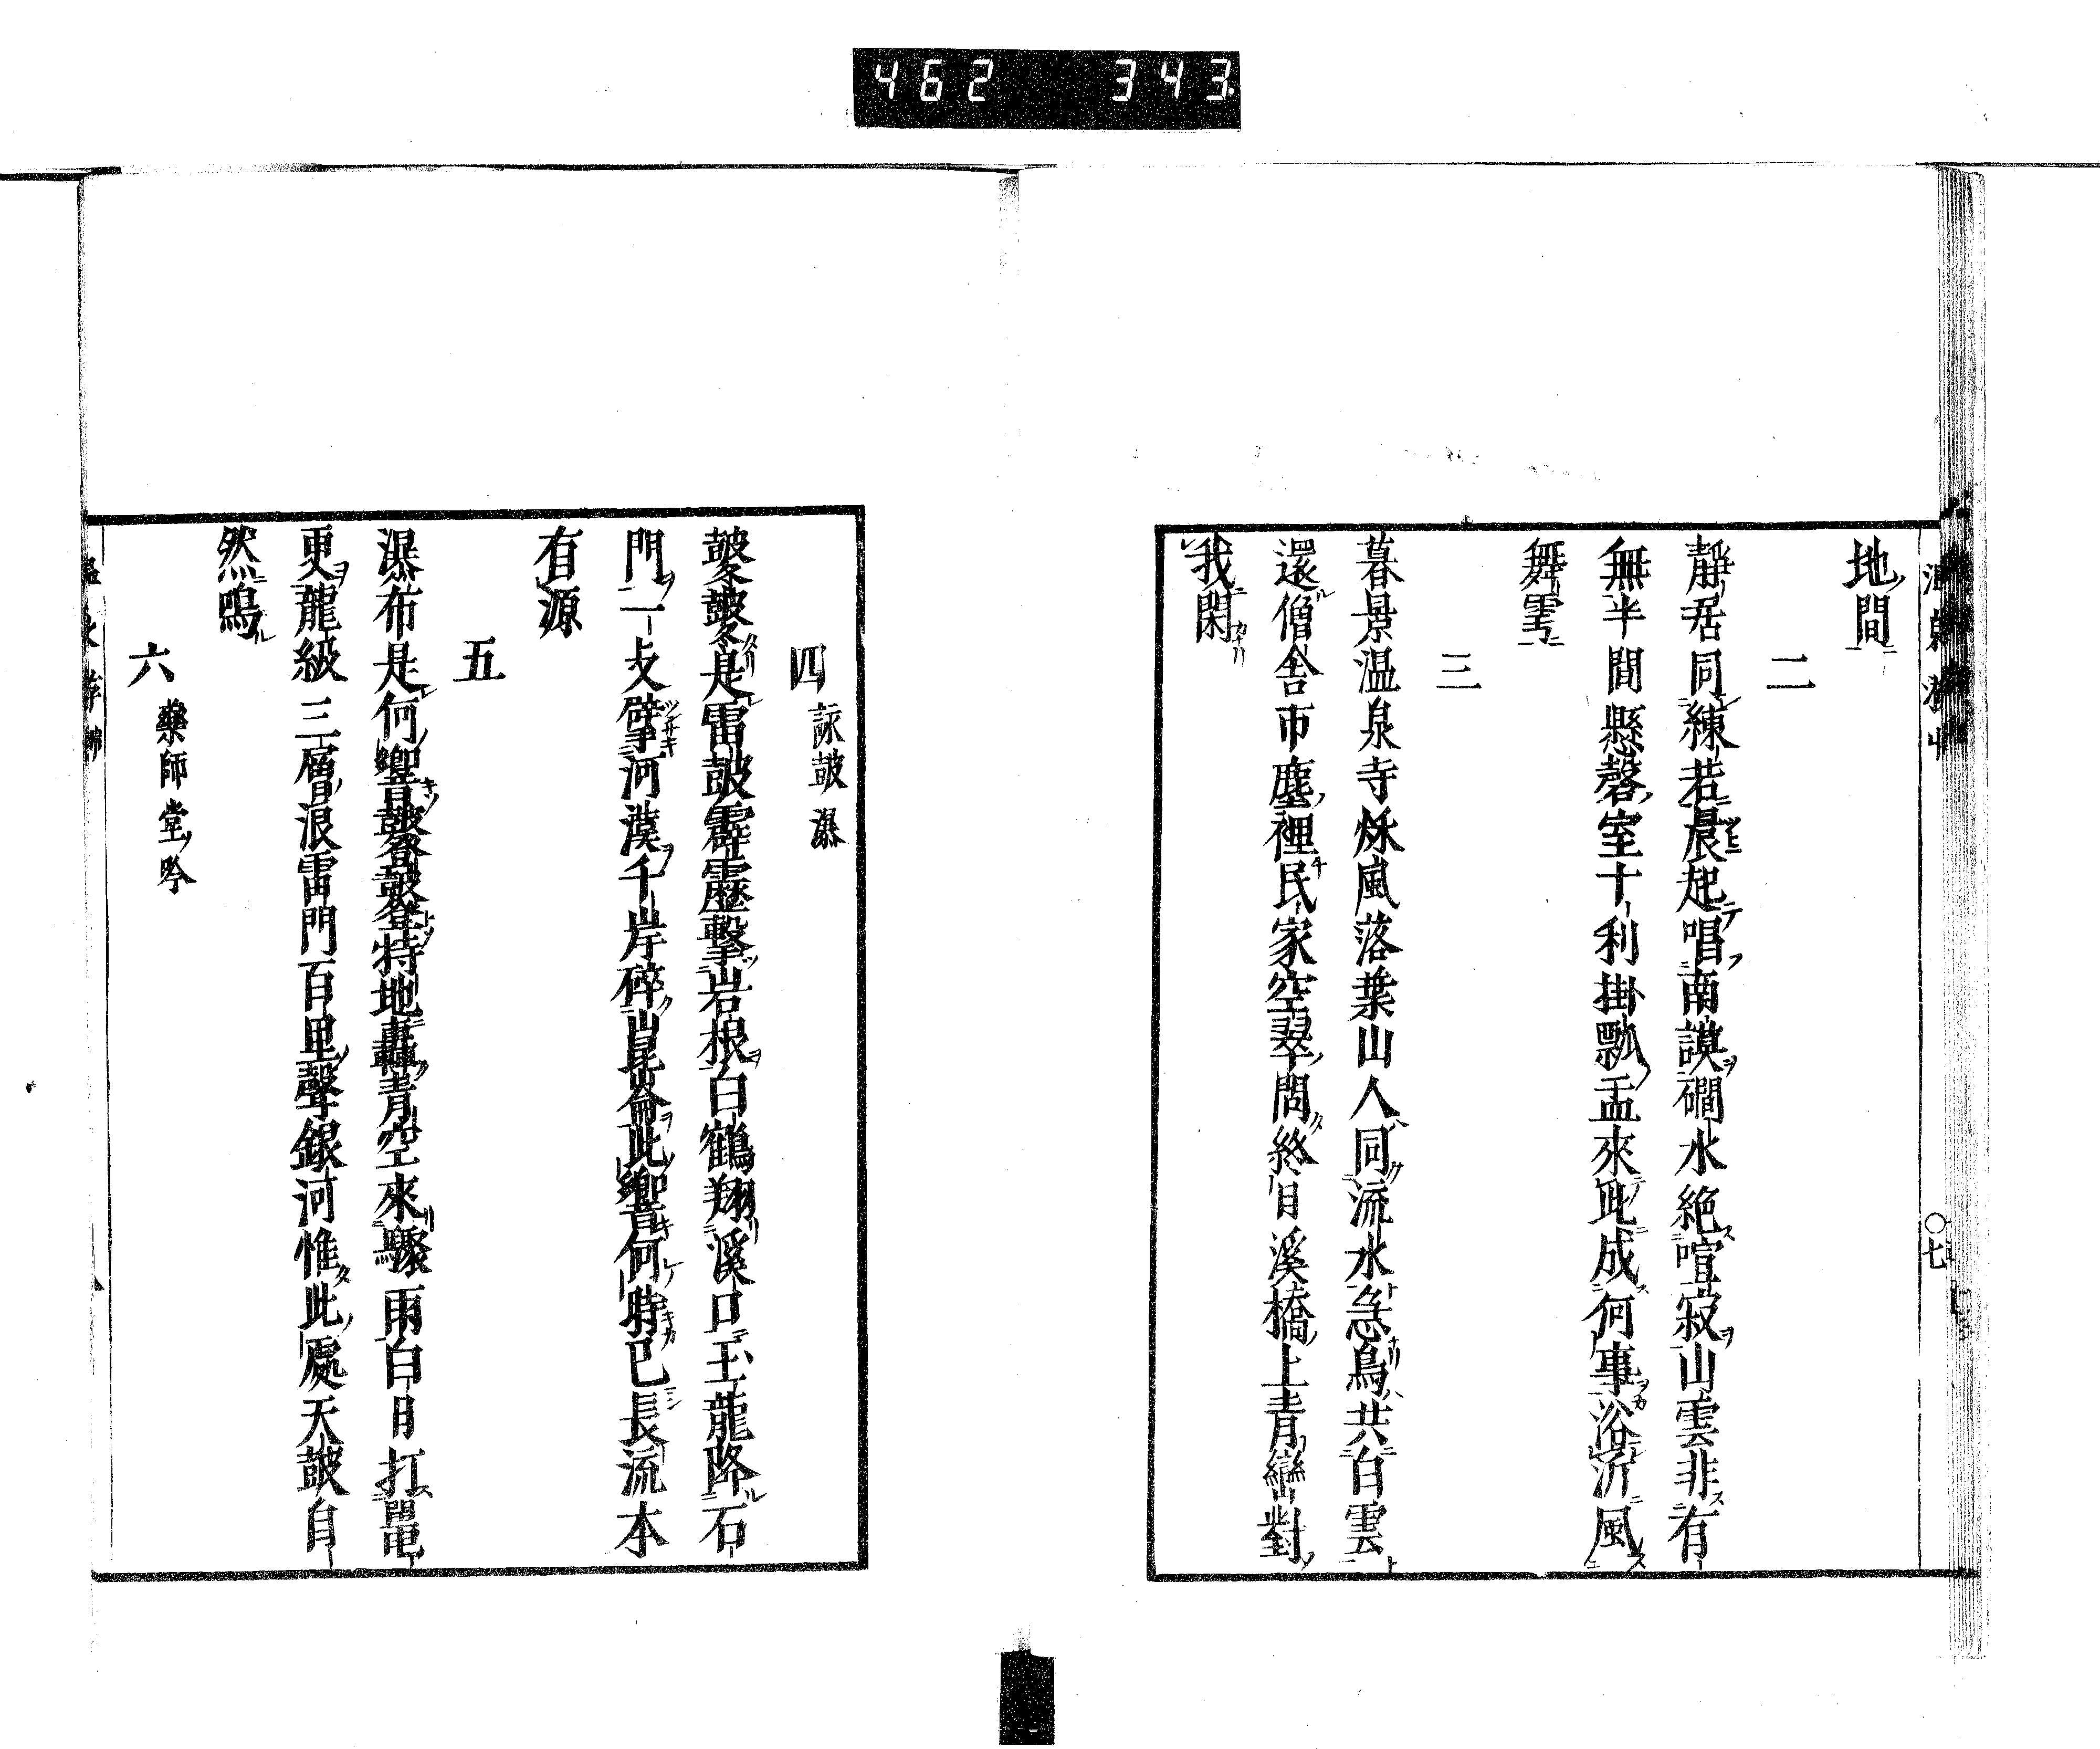 462 343
地間
二
靜居同練若晨起唱南謨磵水絶喧寂山雲非有
無半間懸磬室十利掛瓢盂來此成何事浴沂風
舞雩
三
暮景温泉寺秌風落葉山人同流水急鳥共白雲
還僧舍市塵裡民家空翠間終日溪橋上青巒對
我閑
〇七
四 詠鼓瀑
鼕鼕是雷鼓霹靂擊岩根白鶴翔溪口玉龍降石
門一攴擘河漢千岸碎崑崙此響何時已長流本
有源
五
瀑布是何響鼞鼞特地轟青空來驟雨白日打鼉
更龍級三層浪雷門百里聲銀河惟此處天鼓自
然鳴
六 藥師堂吟